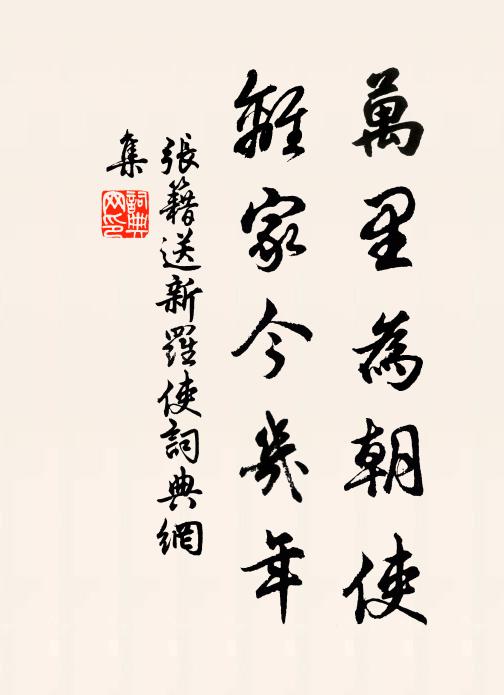 萬里為朝使
離家今幾年
張籍送新羅使詞典網
集
詞典網印